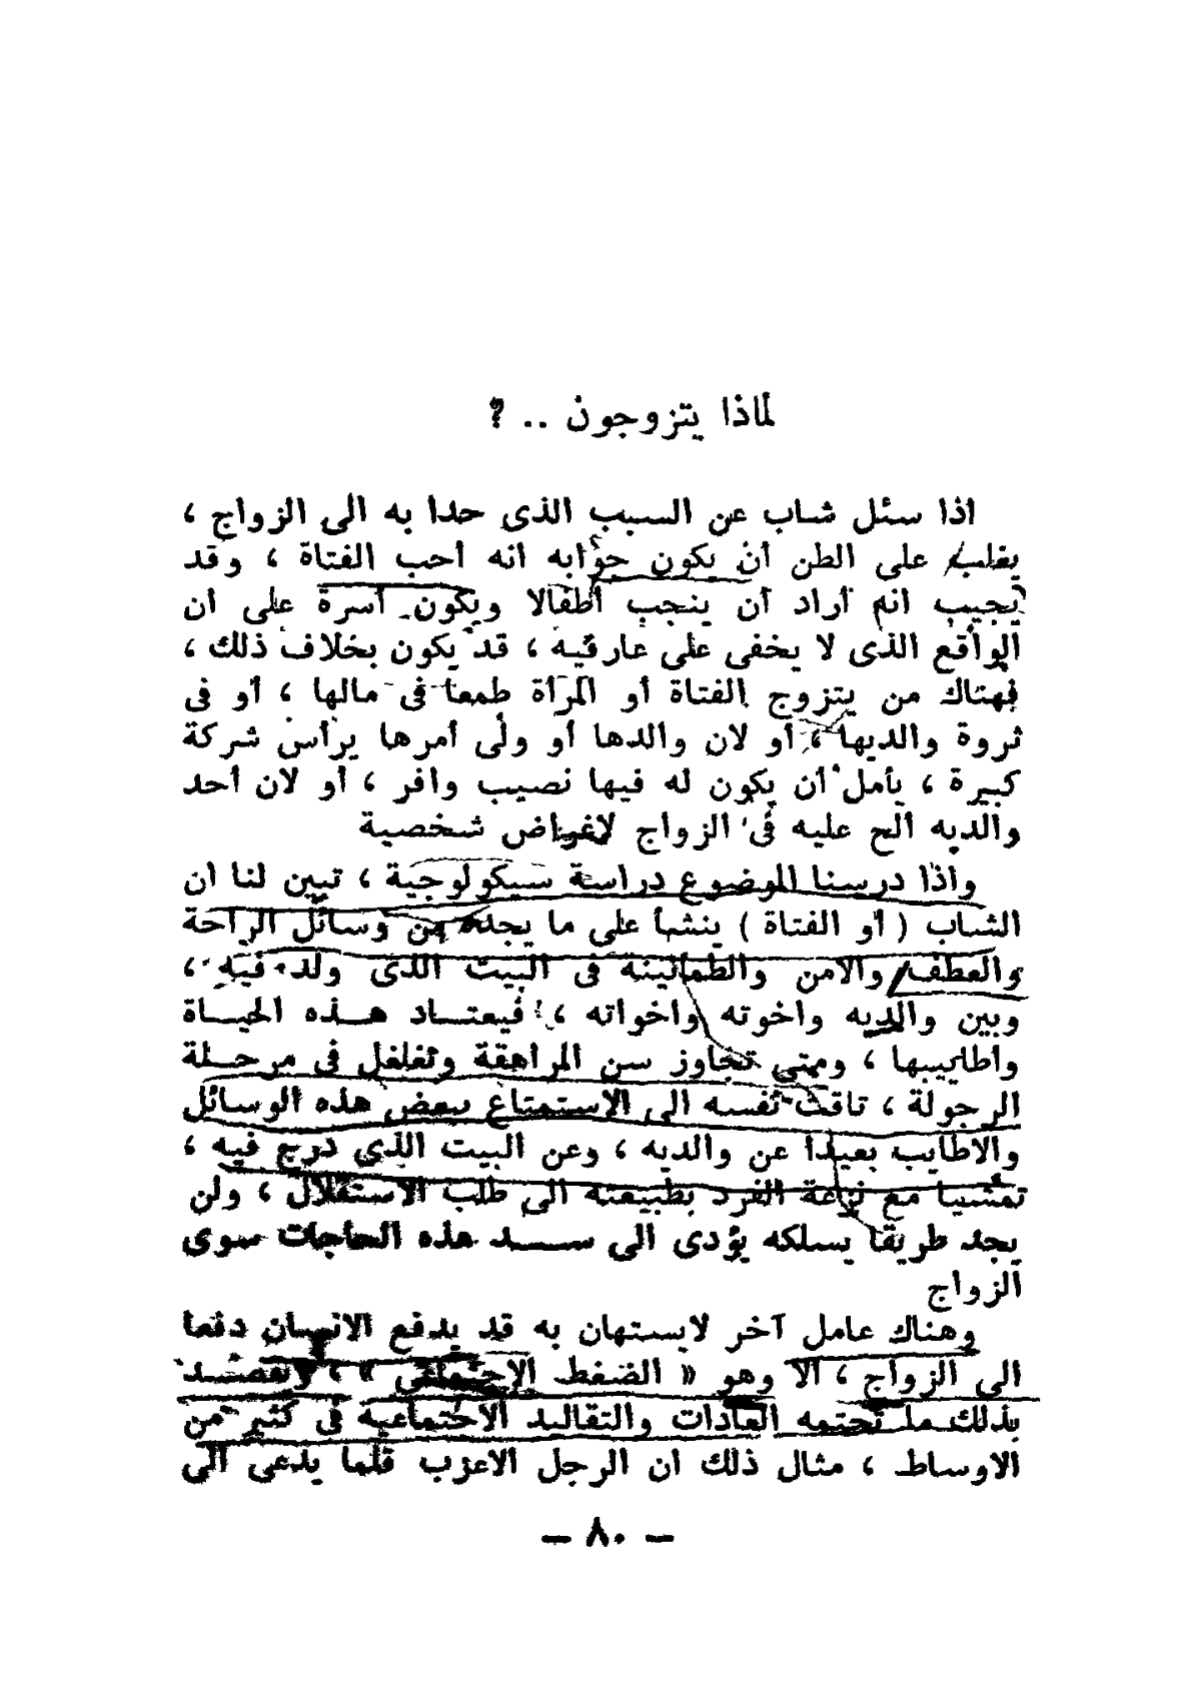 لماذا يتزوجون .. ؟
اذا سئل شاب عن السبب الذى حدا به الى الزواج ،
يغلب على الظن أن يكون جوابه انه أحب الفتاة ، وقد
يجيب انه أراد أن ينجب أطفالا ويكون أسرة على ان
الواقع الذى لا يخفى على عارفيه ، قد يكون بخلاف ذلك ،
فهناك من يتزوج الفتاة أو المرأة طمعا فى مالها ، أو فى
ثروة والديها ، أو لان والدها أو ولى أمرها يرأس شركة
كبيرة ، يأمل أن يكون له فيها نصيب وافر ، أو لان أحد
والديه الح عليه فى الزواج لاغراض شخصية
واذا درسنا الموضوع دراسة سيكولوجية ، تبين لنا ان
الشاب ( أو الفتاة ) ينشأ على ما يجده من وسائل الراحة
والعطف والامن والطمأنينة فى البيت الذى ولد فيه ،
وبين والديه واخوته واخواته ، فيعتاد هذه الحياة
واطاييبها ، ومتى تجاوز سن المراهقة وتغلغل فى مرحلة
الرجولة ، تاقت نفسه الى الاستمتاع ببعض هذه الوسائل
والاطايب بعيدا عن والديه ، وعن البيت الذى درج فيه ،
تمشيا مع نزعة الفرد بطبيعته الى طلب الاستقلال ، ولن
يجد طريقا يسلكه يؤدى الى سد هذه الحاجات سوى
الزواج
وهناك عامل آخر لايستهان به قد يدفع الانسان دفعا
الى الزواج ، الا وهو « الضغط الاجتماعى » ، ونقصد
بذلك ما تحتمه العادات والتقاليد الاجتماعية فى كثير من
الاوساط ، مثال ذلك ان الرجل الاعزب قلما يدعى الى
— ٨٠ —